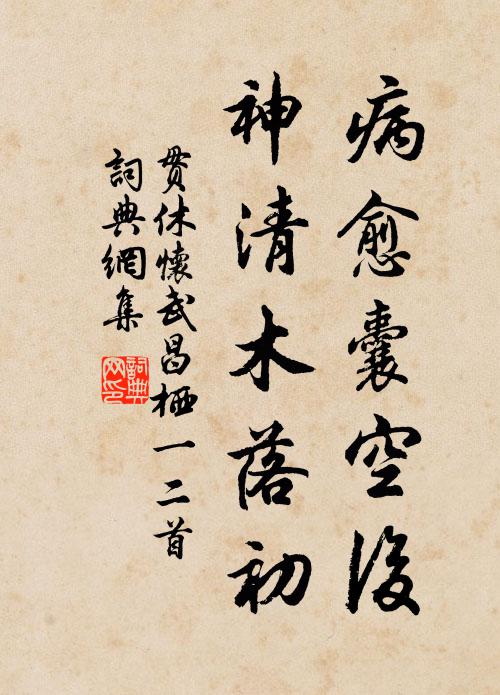 病愈囊空後
神清木落初
贯休懷武昌栖一二首
詞典網集
詞典
网印